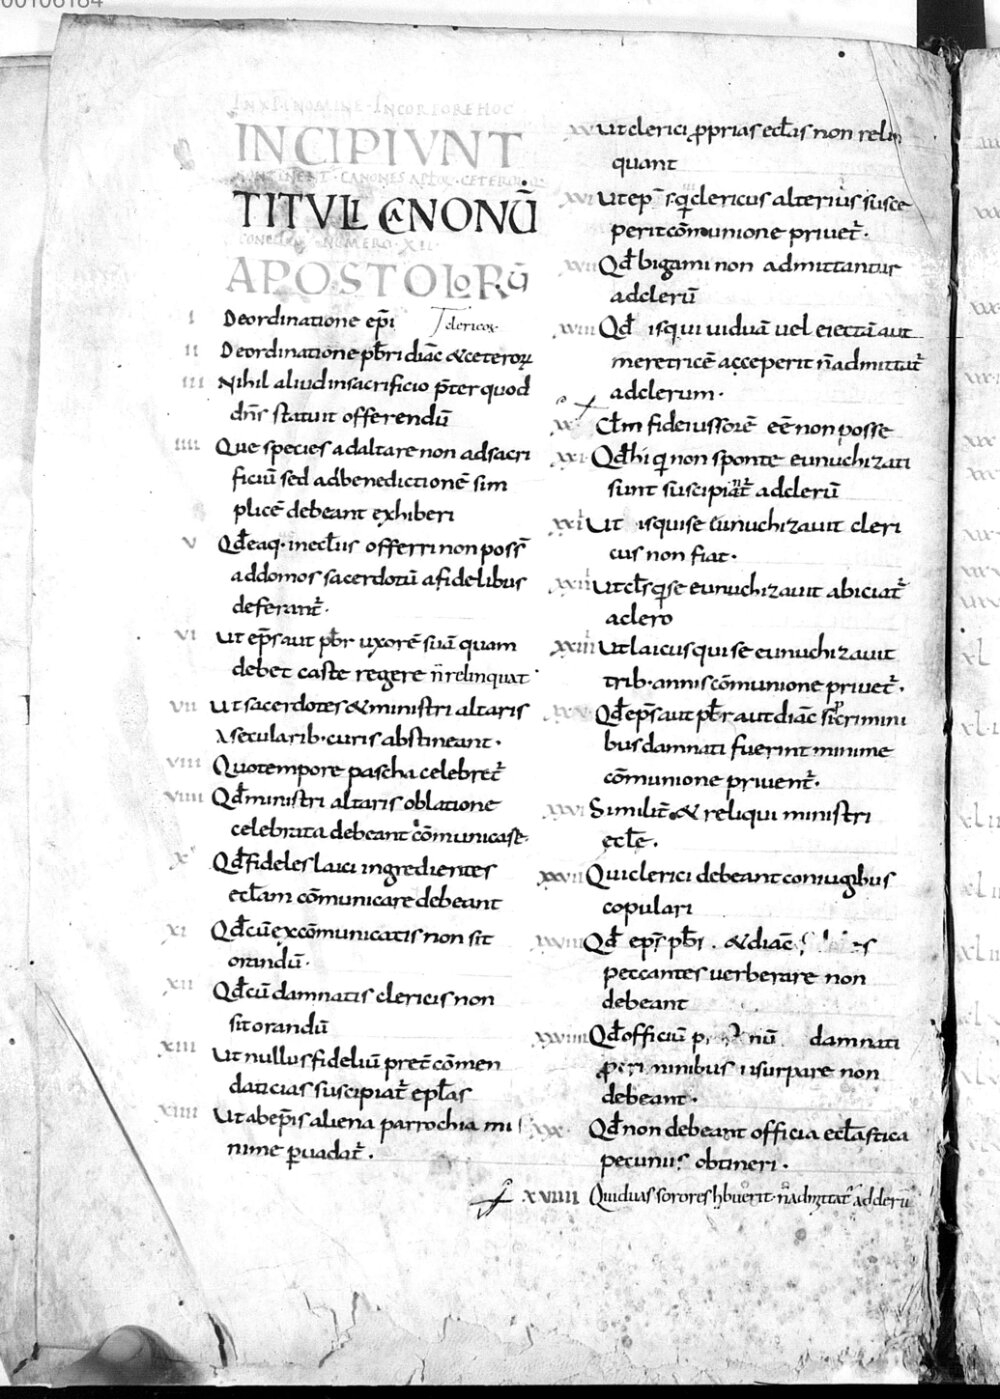 00106184
INXPINOMINE·INCORPOREHOC
INCIPIVNT
CONTINENT·CANONES APLOR·CETERORUM
TITVLI CANONŪ
NUMERO·XII·
APOSTOLORŪ
I Deordinatione ep̄i clericor
II Deordinatione pb̄ri diāc &ceteroꝝ
III Nihil aliud insacrificio p̄ter quod
dn̄s statuit offerendū
IIII Que species adaltare non adsacri
ficiū sed adbenedictionē sim
plicē debeant exhiberi
V Qđ eaq· inecl̄iis offerri non poss̄
addomos sacerdotū afidelibus
deferant̄·
VI Ut ep̄s aut pb̄r uxorē suā quam
debet caste regere n̄ relinquat
VII Ut sacerdotes & ministri altaris
A secularib· curis abstineant·
VIII Quo tempore pascha celebret̄
VIIII Qđ ministri altaris oblatione
celebrata debeant cōmunicare·
X Qđ fideles laici ingredientes
ecl̄am cōmunicare debeant
XI Qđ cū excōmunicatis non sit
orandū·
XII Qđ cū damnatis clericis non
sit orandū
XIII Ut nullus fideliū pret̄ cōmen
daticias suscipiat̄ epl̄as
XIIII Ut abep̄is aliena parrochia mi
nime ꝑuadat̄·
XV Ut clerici ꝓprias ecl̄as non relin
quant
XVI Ut ep̄s qui clericus alterius susce
perit cōmunione priuet̄·
XVII Qđ bigami non admittantur
adclerū
XVIII Qđ isqui uiduā uel eiectā aut
meretricē acceperit n̄ admittat̄
adclerum·
XX Cl̄m fideiussorē eē non posse
XXI Qđ hi q non sponte eunuchizati
sunt suscipiant̄ adclerū
XXII Ut isquise eunuchizauit cleri
cus non fiat·
XXIII Ut cl̄s q se eunuchizauit abiciat̄
aclero
XXIIII Ut laicus qui se eunuchizauit
trib· annis cōmunione priuet̄·
XXV Qđ ep̄s aut pb̄r aut diāc crimini
bus damnati fuerint minime
cōmunione priuent̄·
XXVI Similit̄ & reliqui ministri
ecl̄e·
XXVII Qui clerici debeant coniugibus
copulari
XXVIII Qđ ep̄s pb̄r & diāc
peccantes uerberare non
debeant
XXVIIII Qđ officiū damnati
usurpare non
debeant·
XXX Qđ non debeant officia ecl̄astica
pecuniis obtineri·
XVIIII Qui duas sorores hbuerit· n̄ admittat̄ adclerū